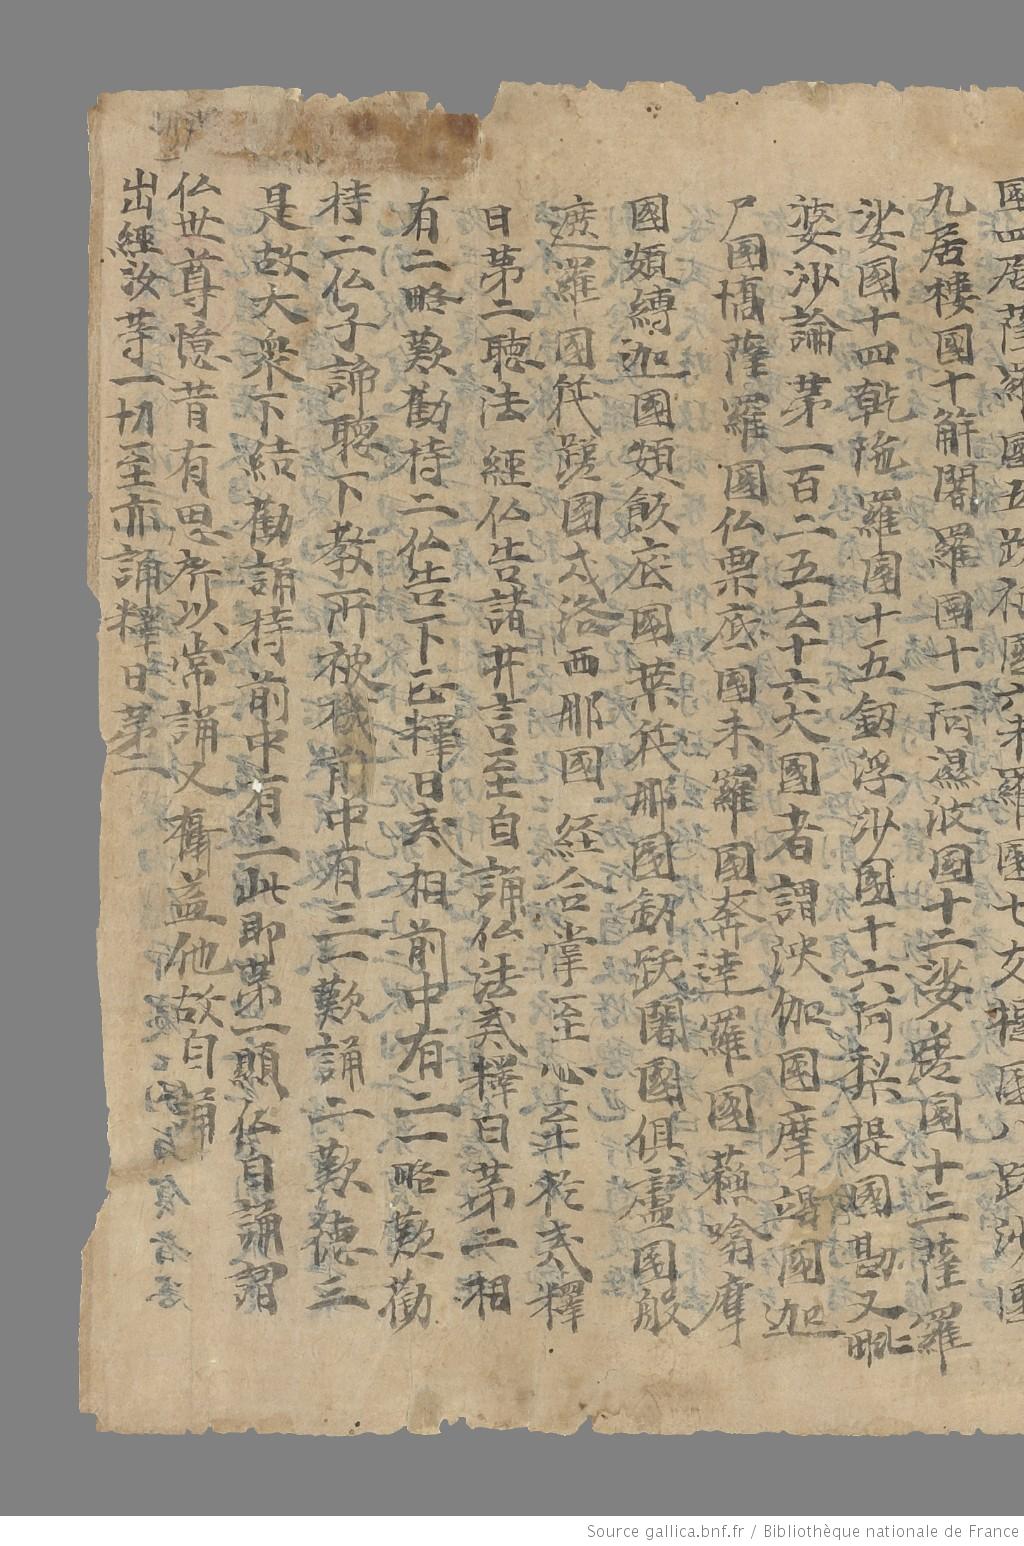 國四居薩羅國五跋祇國六未羅國七支提國八跋沙國
九居樓國十解闍羅國十一阿濕波國十二娑麾國十三薩羅
娑國十四乹陁羅國十五劒浮沙國十六阿梨提國勘又毗
婆沙論 苐一百二五云十六大國者謂泱伽國摩竭國迦
尸國憍薩羅國仏栗底國末羅國奔達羅國蘓噏摩
國頞縛迦國頞飯底國葉筏那國劒跋闍國俱盧國般
遮羅國筏蹉國戍洛西那國 経合掌至心 釋
日苐二聴法 經仏告諸井言至自誦仏法 釋曰苐二相
有二略歎勸持二仏告下正釋日 相前中有二一略歎勸
持二仏子諦聴下教所被機前中有三一歎誦二歎德三
是故大衆下結勸誦持前中有二此即苐一顯仏自誦謂
仏世尊憶昔有恩所以常誦又 益他故自誦
出經汝等一切至亦誦釋日苐二
Source gallica.bnf.fr / Bibliothèque nationale de France